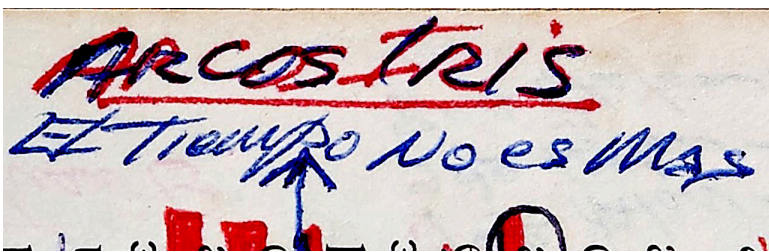 ARCOS IRIS
El Tiempo No es Mas